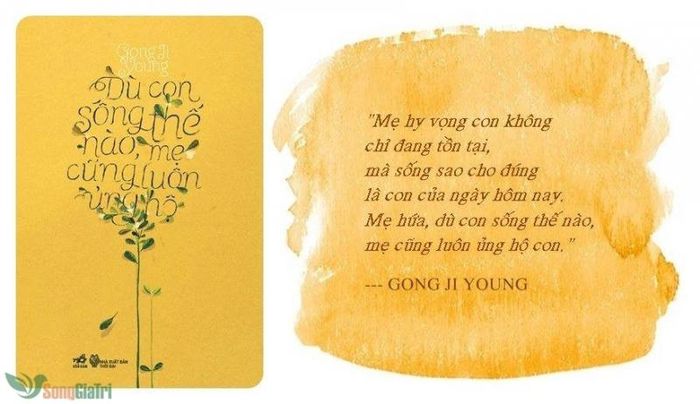 Gong Ji
Young
Dù con
sống thế
nào, mẹ
cũng luôn
ủng hộ
NHÃ NAM
NHÀ XUẤT BẢN
THỜI ĐẠI
SongGiaTri
"Mẹ hy vọng con không
chỉ đang tồn tại,
mà sống sao cho đúng
là con của ngày hôm nay.
Mẹ hứa, dù con sống thế nào,
mẹ cũng luôn ủng hộ con."
--- GONG JI YOUNG